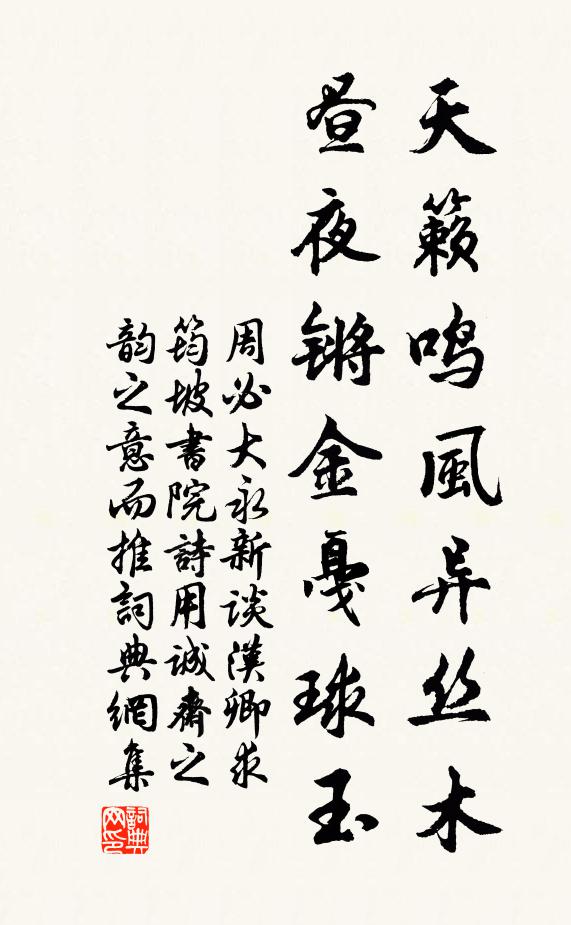 天籁鸣風异丝木
昼夜锵金戛球玉
周必大永新谈漢卿求
筠坡書院詩用诚齋之
韵之意而推詞典網集
詞典网印